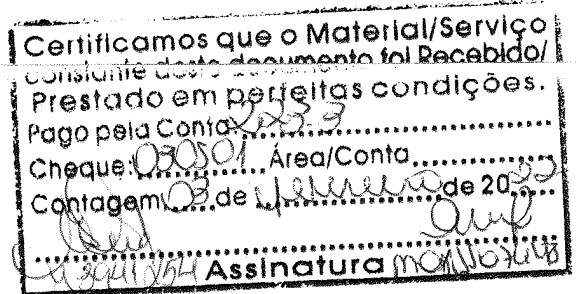 Certificamos que o Material/Serviço
constante deste documento foi Recebido/
Prestado em perfeitas condições.
Pago pela Conta
Cheque: 030501 Área/Conta
Contagem 03 de fevereiro de 2022
Assinatura